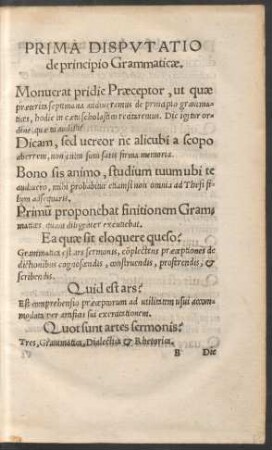 PRIMA DISPVTATIO
de principio Grammaticæ.
Monuerat pridie Præceptor, ut quæ
præterita septimana audiueramus de principio gram-
matices, hodie in cœtu scholastico recitaremus. Dic igitur or-
dine, quæ audisti?
Dicam, sed uereor ne alicubi a scopo
aberrem, non enim sum satis firma memoria.
Bono sis animo, studium tuum ubi te
audiuero, mihi probabitur etiamsi non omnia ad Thesi
adsequaris.
Primũ proponebat finitionem Gram
matices quam diligenter excutiebat.
Ea quæ sit eloquere quęso?
Grammatica est ars sermonis, cõplectens præceptiones de
dictionibus cognoscendis, construendis, proferendis, &
scribendis.
Quid est ars?
Est comprehensio præceptorum ad utilitatem usui accom-
modata per
exercitationem.
Quot sunt artes sermonis?
Tres, Grammatica, Dialectica & Rhetorica.
B Dic